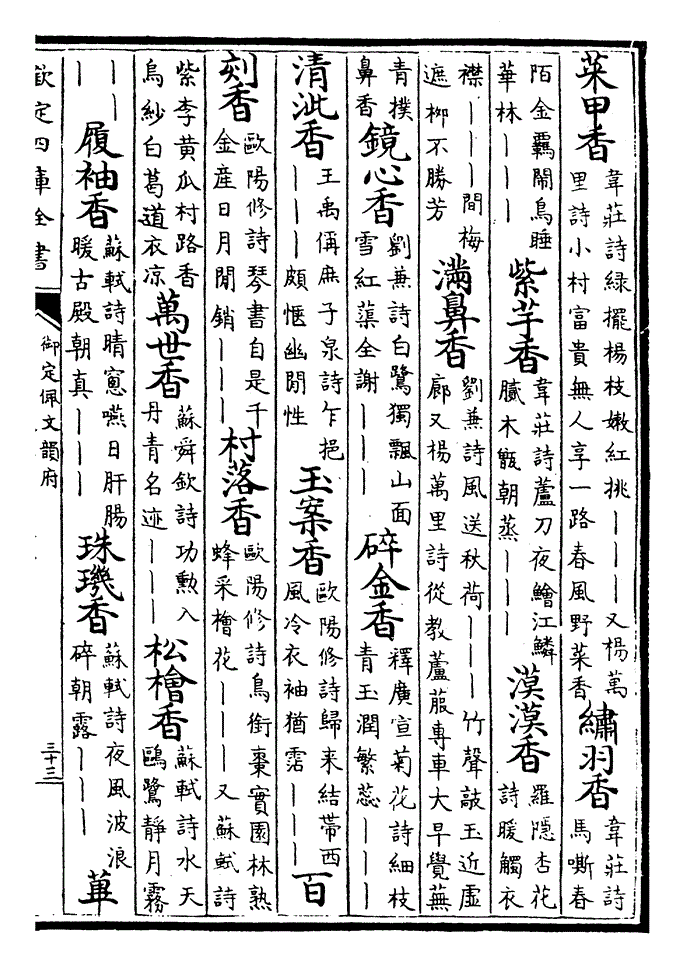 菜甲香韋莊詩綠擺楊枝嫩紅挑｜｜｜又楊萬里詩小村富貴無人享一路春風野菜香繡羽香韋莊詩馬嘶春
陌金羈鬧鳥睡華林｜｜｜紫芋香韋莊詩蘆刀夜鱠江鱗膩木甑朝蒸｜｜｜漠漠香羅隱杏花詩暖觸衣
襟｜｜｜間梅遮柳不勝芳滿鼻香劉兼詩風送秋荷｜｜｜竹聲敲玉近虛廊又楊萬里詩從教蘆菔專車大早覺蕪
青樸鼻香鏡心香劉兼詩白鷺獨飄山面雪紅蕖全謝｜｜｜碎金香釋廣宣菊花詩細枝青玉潤繁蕊｜｜｜
清泚香王禹偁庶子泉詩乍挹｜｜｜頗愜幽閒性玉案香歐陽修詩歸来結帶西風冷衣袖猶霑｜｜｜百
刻香歐陽修詩琴書自是千金產日月閒銷｜｜｜村落香歐陽修詩鳥銜棗實園林熟蜂采檜花｜｜｜又蘇軾詩
紫李黃瓜村路香烏紗白葛道衣凉萬世香蘇舜欽詩功勲入丹青名迹｜｜｜松檜香蘇軾詩水天鷗鷺靜月霧
｜｜｜履袖香蘇軾詩晴窻嚥日肝腸暖古殿朝真｜｜｜珠璣香蘇軾詩夜風波浪碎朝露｜｜｜蓽
欽定四庫全書
御定佩文韻府
三十三